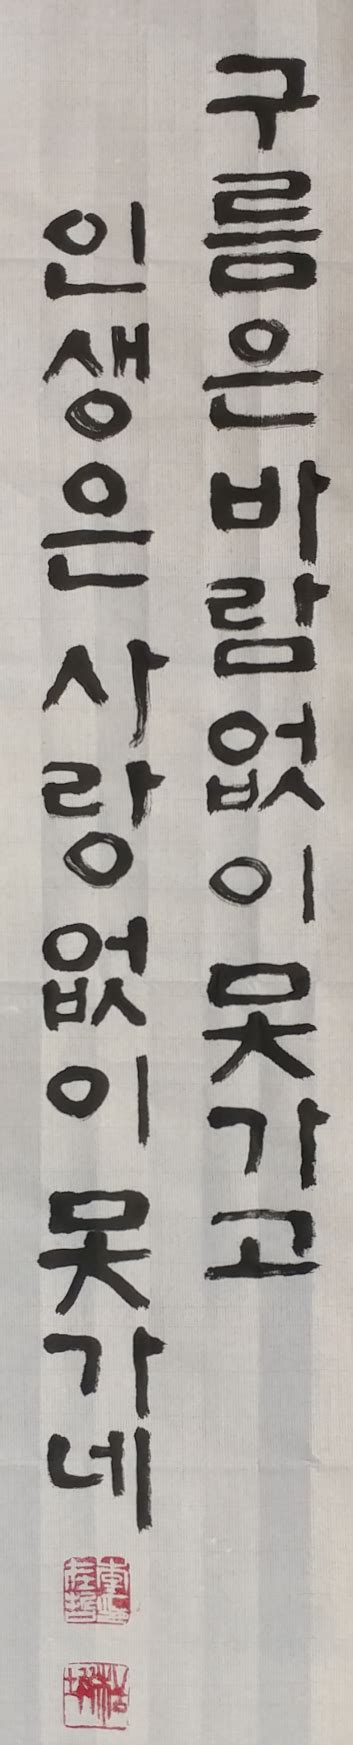 구름은바람없이못가고
인생은사랑없이못가네